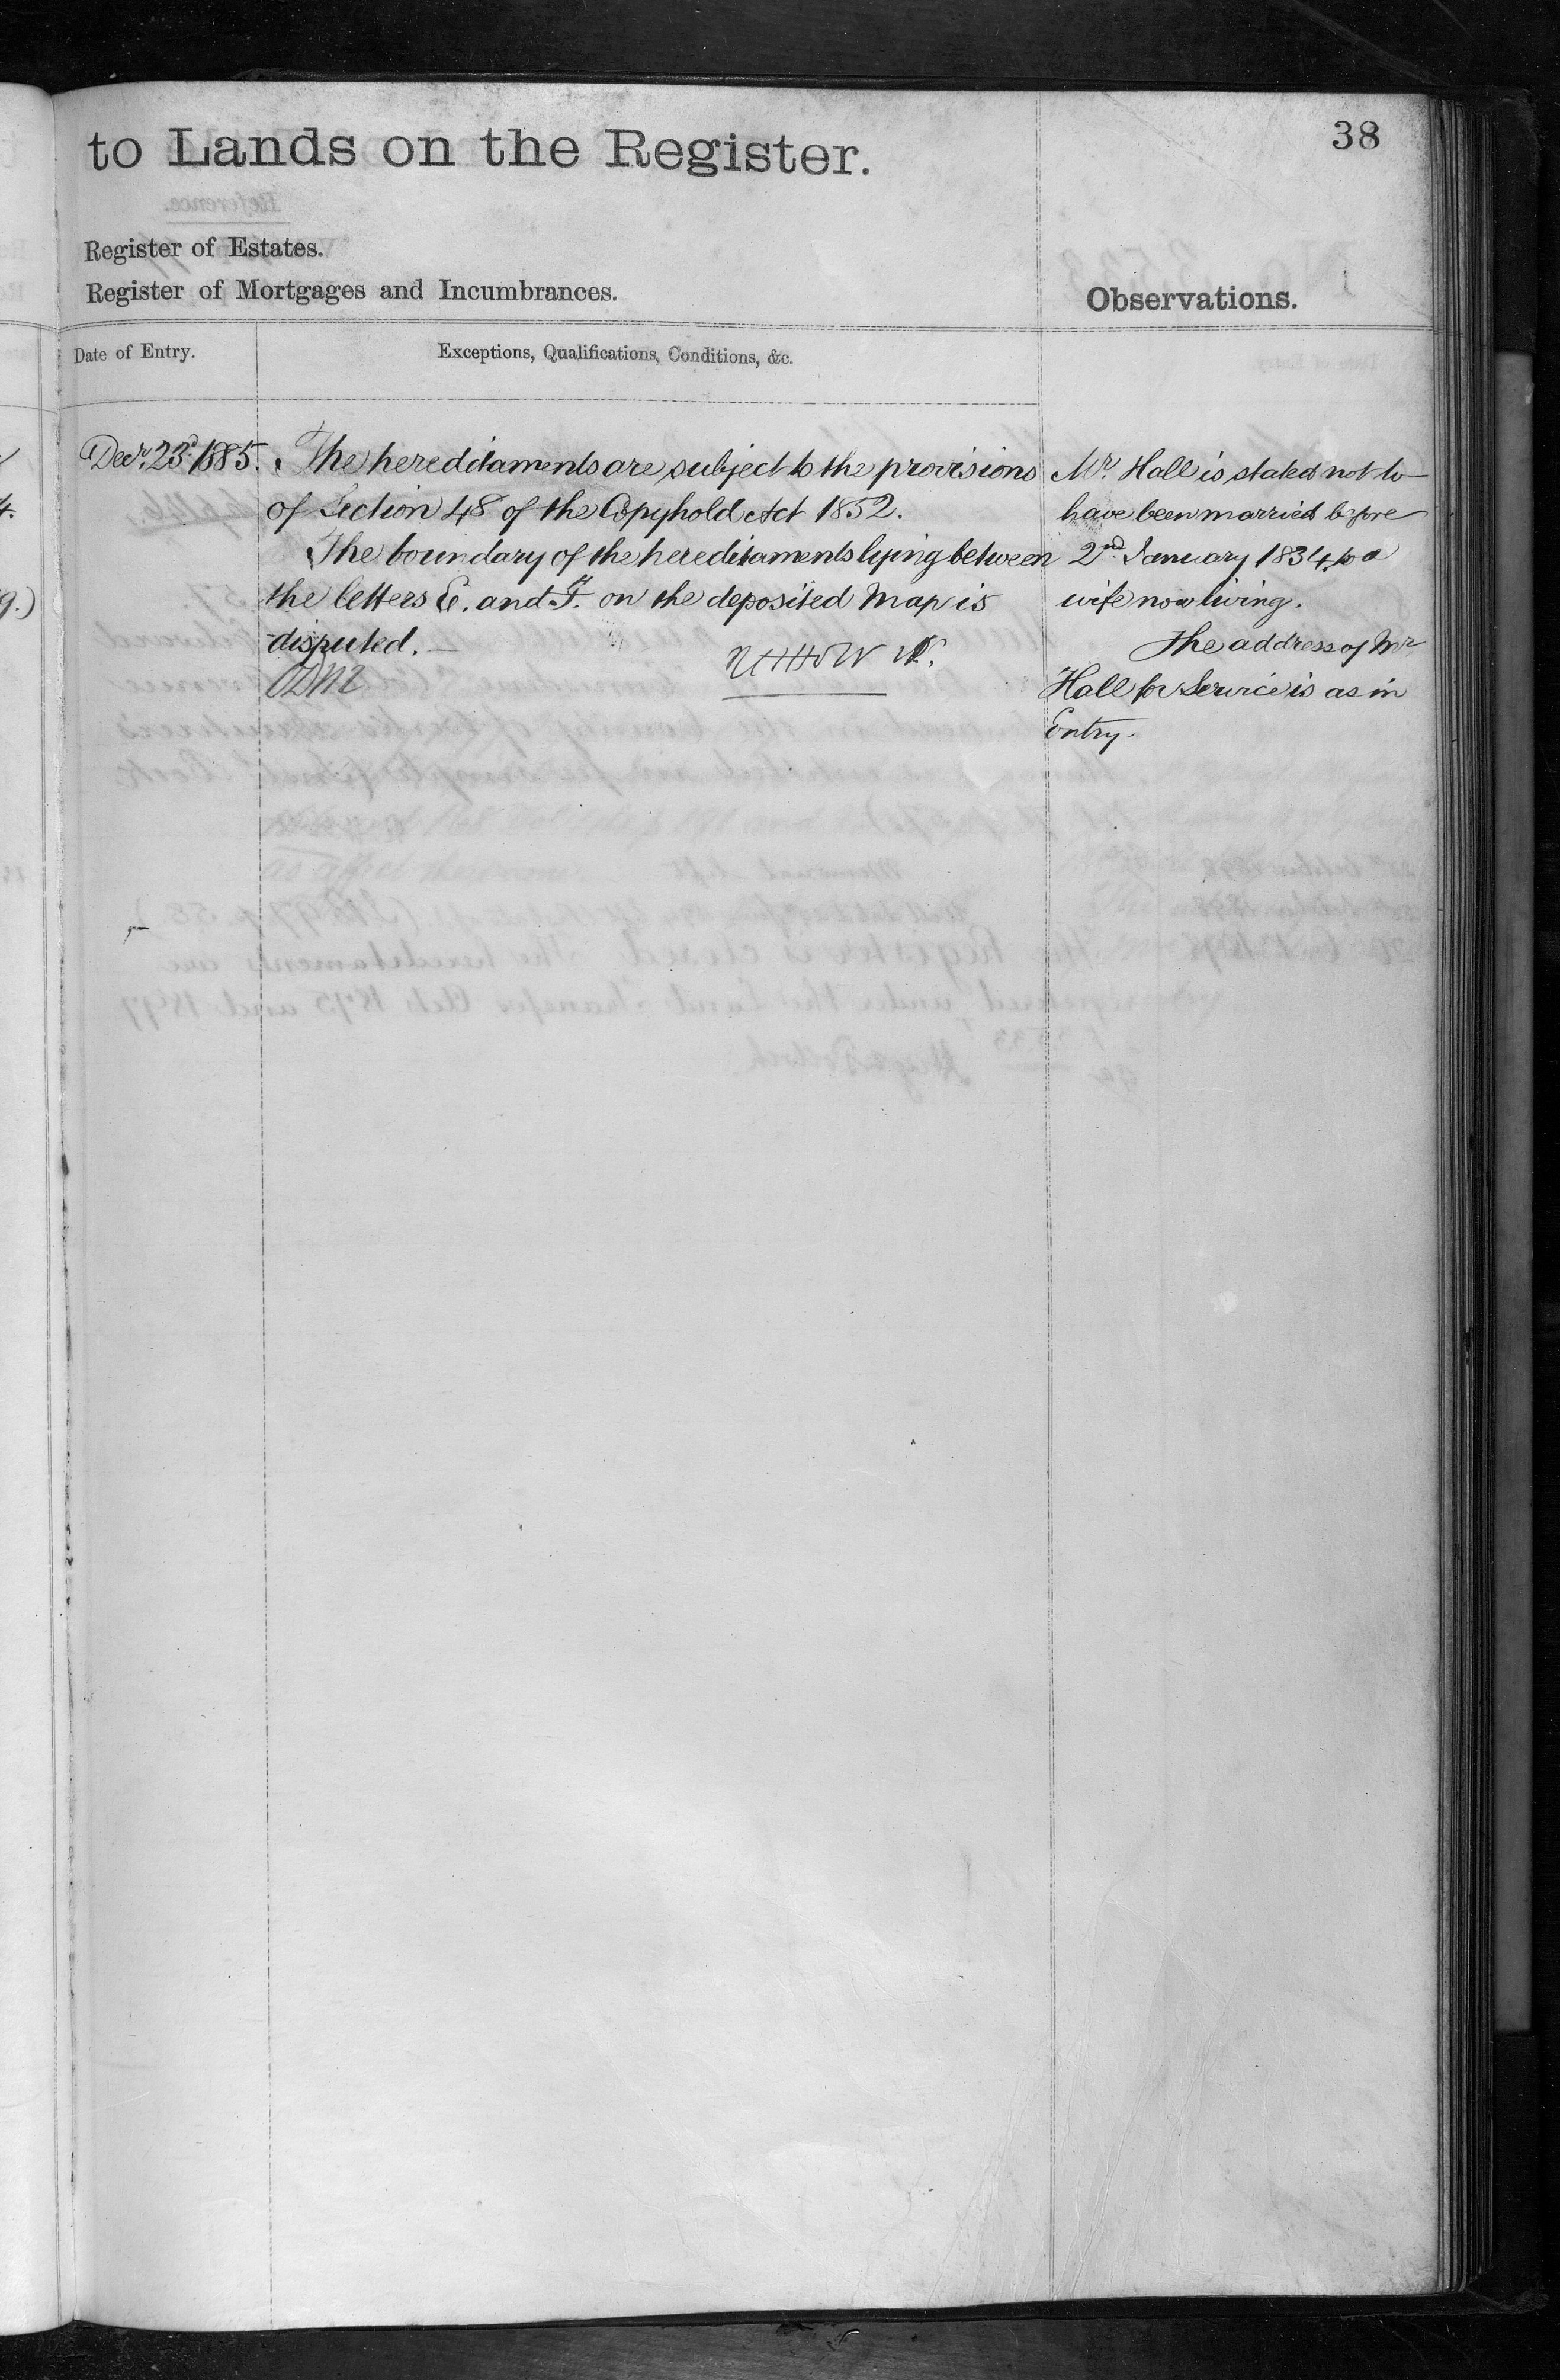 38
to Lands on the Register.
Register of Estates.
Register of Mortgages and Incumbrances.
Observations.
Date of Entry.
Exceptions, Qualifications, Conditions, &c.
Decr. 23d. 1885. The hereditaments are subject to the provisions
of Section 48 of the Copyhold Act 1852.
The boundary of the hereditaments lying between
the letters E. and F. on the deposited Map is
disputed.
Mr. Hall is stated not to
have been married before
2nd January 1834 to a
wife now living.
The address of Mr
Hall for Service is as in
Entry.